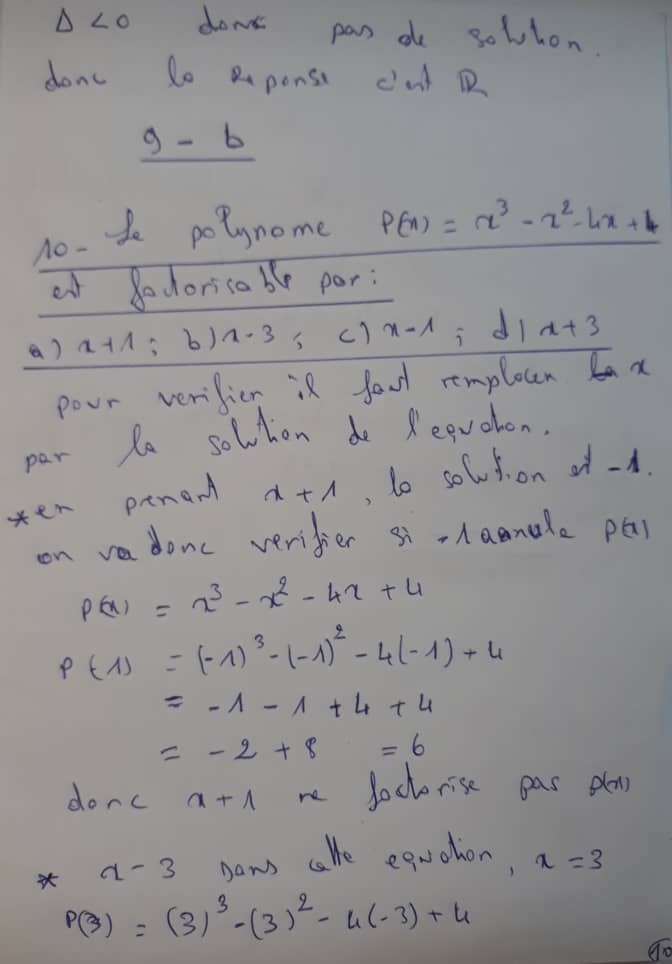 Δ < 0 donc pas de solution.
donc la Reponse c'est ℝ
9 - b
10 - Le polynome P(x) = x³ - x² - 4x + 4
est factorisable par :
a) x+1 ; b) x-3 ; c) x-1 ; d) x+3
pour verifier il faut remplacer x
par la solution de l'equation.
* en prenant x+1, la solution est -1.
on va donc verifier si -1 annule P(x)
P(x) = x³ - x² - 4x + 4
P(-1) = (-1)³ - (-1)² - 4(-1) + 4
= -1 - 1 + 4 + 4
= -2 + 8 = 6
donc x+1 ne factorise pas P(x)
* x-3 Dans cette equation, x = 3
P(3) = (3)³ - (3)² - 4(-3) + 4
10